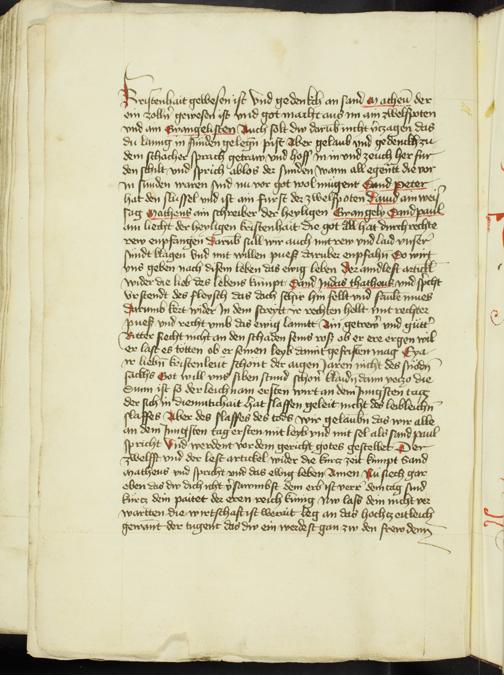 kristenhait gewesen ist Vnd gedenckh an sand Matheu der
ein zollnr gewesen ist vnd got macht aus im ain zwelfpoten
vnd ain Ewangelisten Auch solt dw darub nicht verzagen das
du lannig in sunden gelegn pist Aber gelaub vnd gedenckh zu
dem schacher sprich getraw vnd hoff in in vnd zeuch her fur
den schilt vnd sprich ablos der sunden wann all egenant die vor
in sunden waren sind nu vor got wol mugent Sand peter
hat den slussel vnd ist ain furst der zwelfpoten Dauid ain weis
sag Matheus ain schreiber der heyligen Ewangely Sand paul
ain liecht der heyligen kristenhait die got all hat durch rechte
rew enpfangen Darub sull wir auch mit rew vnd laid vnser
sundt klagen vnd mit willen puess daruber enpfahn So wirt
vns geben nach disem leben das ewig leben Der aindlest artickl
wider die lieb das lebens kumpt Sand Judas thatheus vnd spricht
vrstendt des fleysch das doch schir hin fellt vnd faule mues
Darumb kert wider in dem streyt zw rechten hellt mit rechter
puess vnd recht vmb das ewig lannt Ain getrewr vnd gutter
Ritter siecht nicht an den schaden seins ross ob er ere ergen wil
er last es totten ob er seinen leyb damit gefristen mag Eya
ir liebn kristenleut schont der aigen Jaren nicht des snoden
sackhs Got will vns siben stund schonr klaidn dann vetzo die
Sunn ist so der leichnam ersten wirt an dem Jungsten tag
der sich in diemutichait hat slaffen geleit nicht des leiblichen
slaffes Aber des slaffes des tods wir gelauben das wir alle
an dem Jungsten tag ersten mit leyb vnd mit sel als sand paul
spricht Vnd werdent vor dem gericht gotes gestellet Der
zwelfft vnd der lest artickel wider die kurtz zeit kumpt Sand
Matheus vnd spricht vnd das ewig leben Amen Nu siech gar
eben das dw dich icht versawmbst dem erb ist verr dein tag sind
kurtz dein paitet der eren reich kunig Nw lass dein nicht ver
wartten die wirtschaft ist berait leg an das hochzeitleich
gewant der tugent das dw ein werdest gan zw den frewden